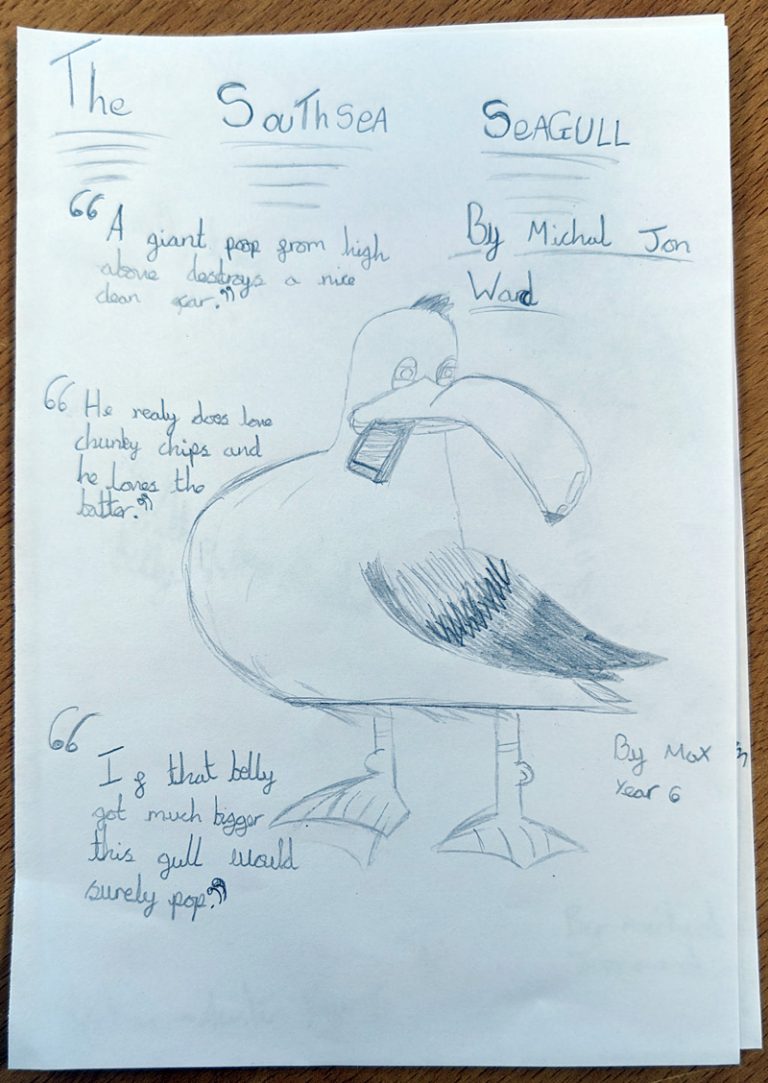 The Southsea SEAGULL
“A giant poop from high
above destroys a nice
clean car.”
By Michal Jon
Ward
“He realy does love
chunky chips and
he loves the
batter.”
“If that belly
got much bigger
this gull would
surely pop.”
By Max
Year 6